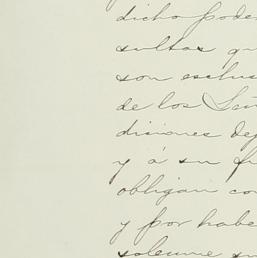 dicho poder
sultas qu
son esclus
de los Señ
disiones de
y á su fr
obligan con
y por habe
solemne